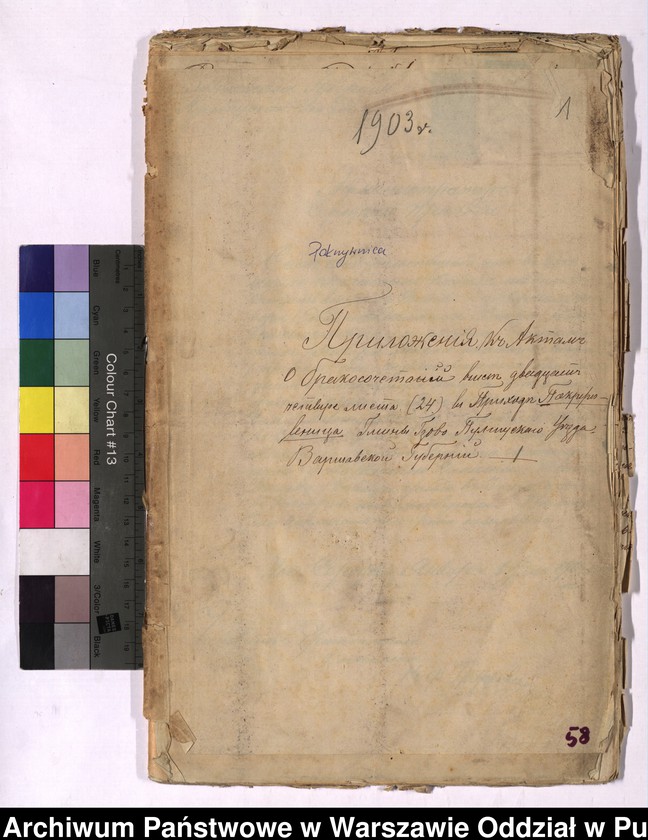 1903 г.
1
Приложенія къ Актамъ
О бракосочетаній двадцать
четыре листа (24) въ Приходѣ Покрже-
вница Гмины Гзово Пултускаго Уѣзда
Варшавской Губерній
58
Colour Chart #13
Blue
Cyan
Green
Yellow
Red
Magenta
White
3/Color
Black
Centimetres
Archiwum Państwowe w Warszawie Oddział w Pu